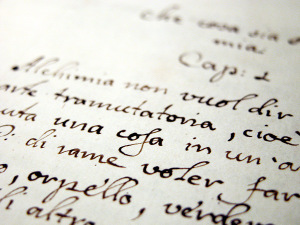 che cosa sia
mia.
Cap: 1
Alchimia non vuol dir
arte tramutatoria, cioe
una cosa in un'a
di rame voler far
orpello, verder
di altro